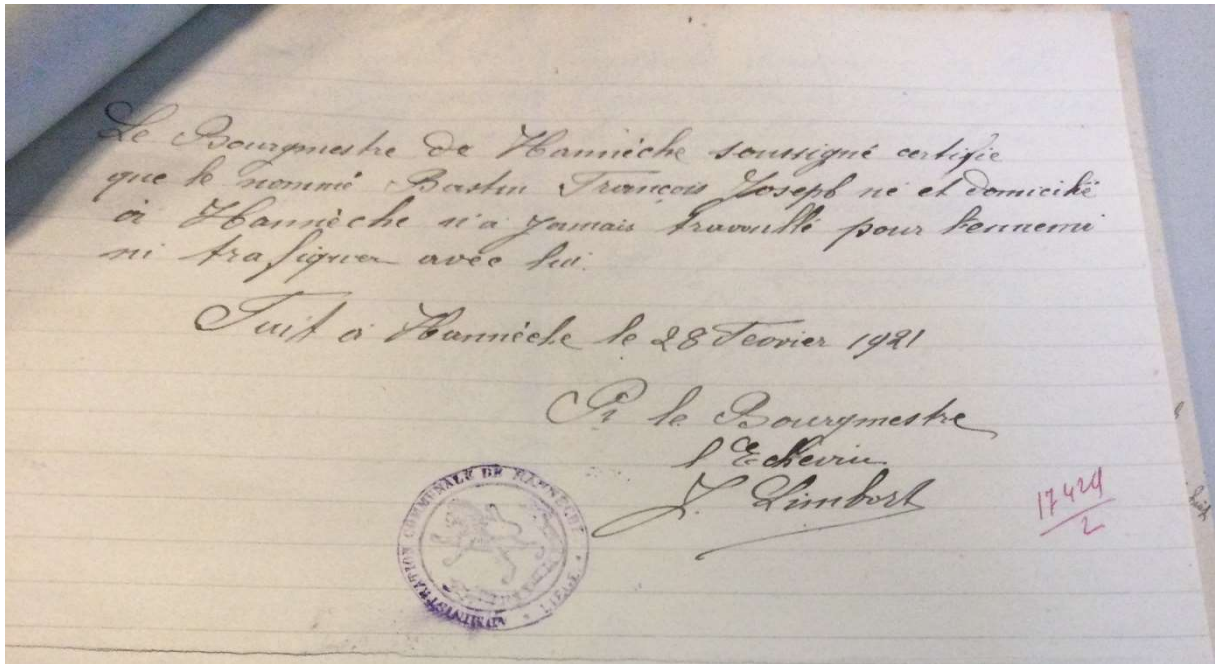 Le Bourgmestre de Hannèche soussigné certifie
que le nommé Bastin François Joseph né et domicilié
à Hannèche n'a jamais travaillé pour l'ennemi
ni trafiquer avec lui.
Fait à Hannèche le 28 Fevrier 1921
Pr le Bourgmestre
l'Echevin
J. Limbort
17424
2
ADMINISTRATION COMMUNALE DE HANNÊCHE
* LIEGE *